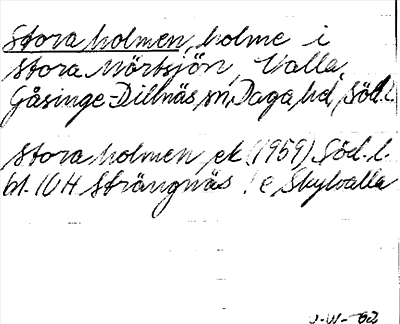 Stora holmen, holme i
Stora Mörtsjön, Valla,
Gåsinge-Dillnäs sn, Daga hd, Söd. l.
Stora holmen, ek (1959) Söd. l.
bl. 10H Strängnäs
J-W-62